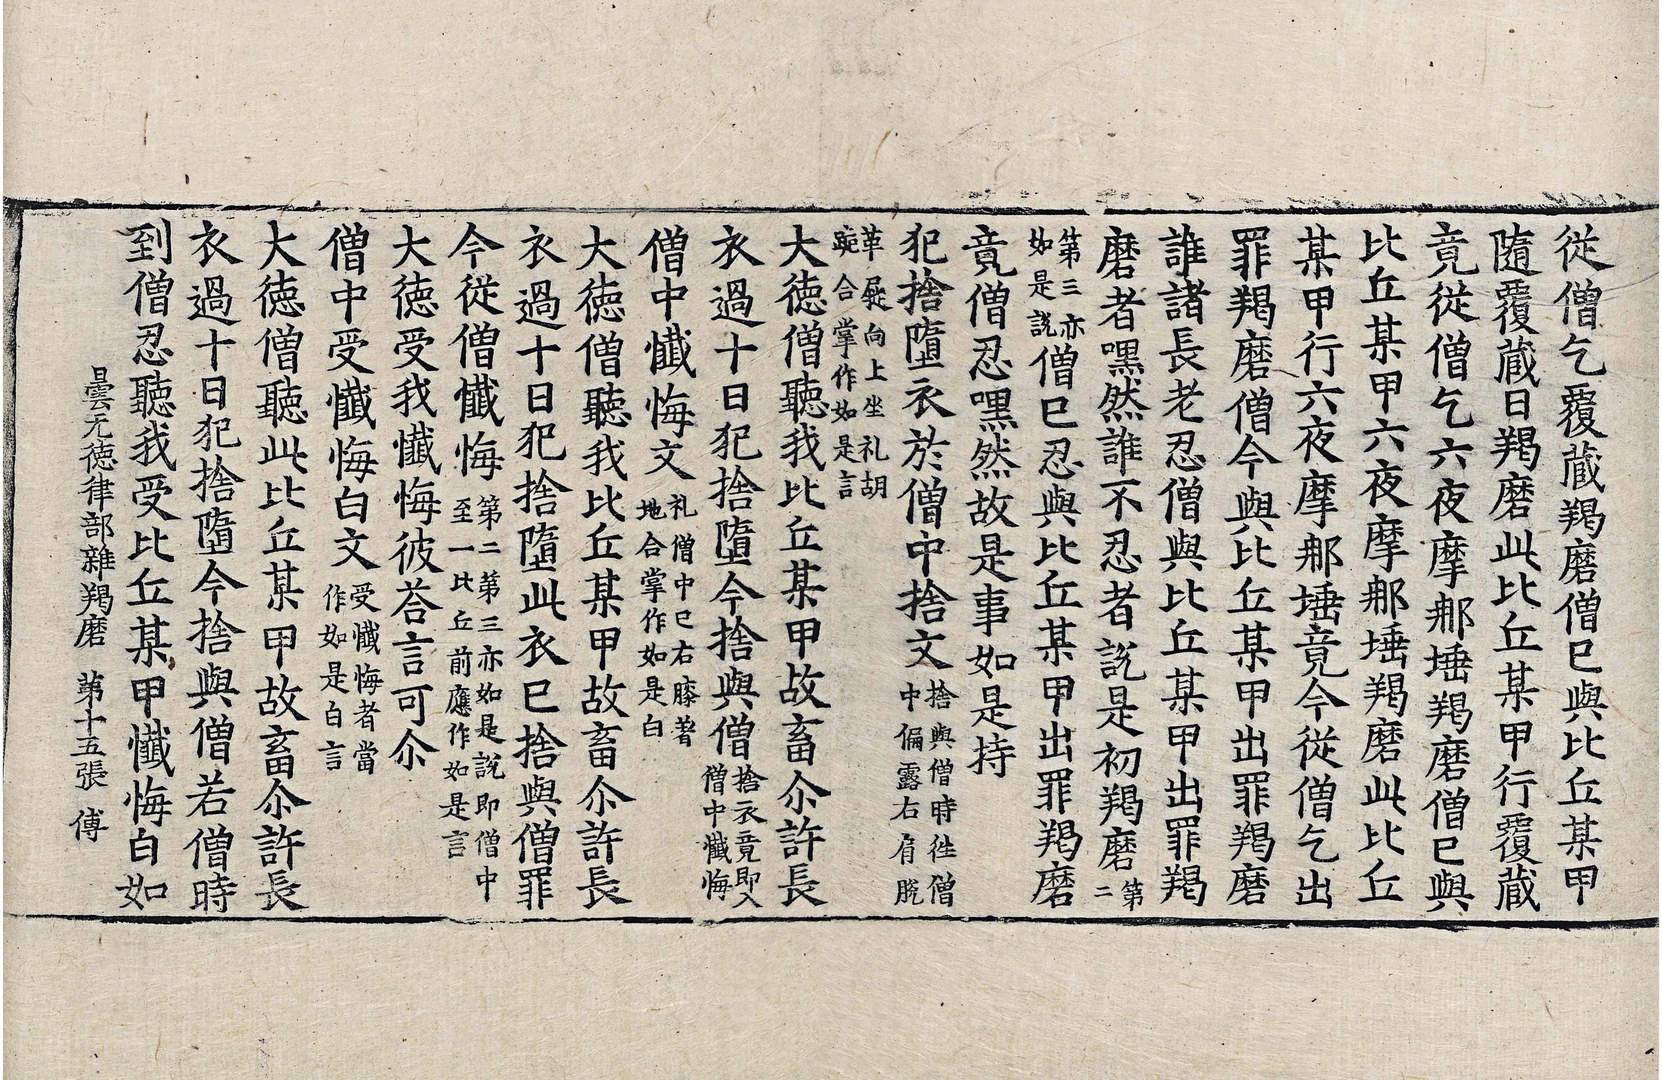 從僧乞覆藏羯磨僧已與比丘某甲
隨覆蔵日羯磨此比丘某甲行覆蔵
竟從僧乞六夜摩那埵羯磨僧已與
比丘某甲六夜摩那埵羯磨此比丘
某甲行六夜摩那埵竟今從僧乞出
罪羯磨僧今與比丘某甲出罪羯磨
誰諸長老忍僧與比丘某甲出罪羯
磨者嘿然誰不忍者説是初羯磨第二
第三亦如是説僧已忍與比丘某甲出罪羯磨
竟僧忍嘿然故是事如是持
犯捨墮衣於僧中捨文捨與僧時往僧中偏露右肩脫
革屣向上坐礼胡跪合掌作如是言
大徳僧聽我比丘某甲故畜尒許長
衣過十日犯捨墮今捨與僧捨衣竟即入僧中懴悔
僧中懴悔文礼僧中已右膝著地合掌作如是白
大徳僧聽我比丘某甲故畜尒許長
衣過十日犯捨墮此衣已捨與僧罪
今從僧懴悔第二第三亦如是説即僧中至一比丘前應作如是言
大徳受我懴悔彼荅言可尒
僧中受懴悔白文受懴悔者當作如是白言
大徳僧聽此比丘某甲故畜尒許長
衣過十日犯捨墮今捨與僧若僧時
到僧忍聽我受比丘某甲懴悔白如
曇无徳律部雜羯磨 第十五張 傅